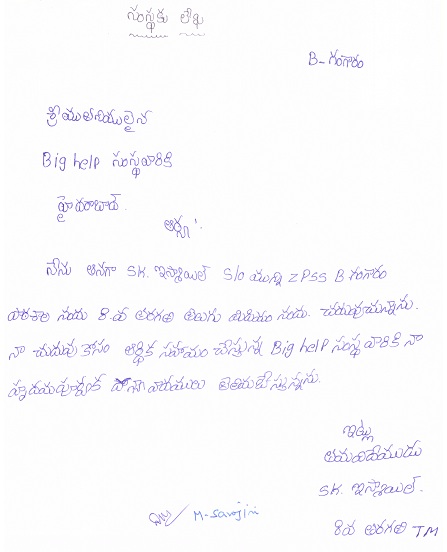 సంస్థకు లేఖ
B- గంగారం
శ్రీయుతనియులైన
Big help సంస్థవారికి
హైదరాబాద్.
ఆర్యా!
నేను అనగా SK. ఇస్మాయిల్ S/o యున్ని ZPSS B గంగారం
పాఠశాల నందు 8.వ తరగతి తెలుగు మీడియం నందు. చదువుచున్నాను.
నా చదువు కోసం ఆర్థిక సహాయం చేస్తున్న Big help సంస్థ వారికి నా
హృదయపూర్వక తెలియజేస్తున్నను.
ఇట్లు
SK. ఇస్మాయిల్.
8వ తరగతి TM
M-Sarojini